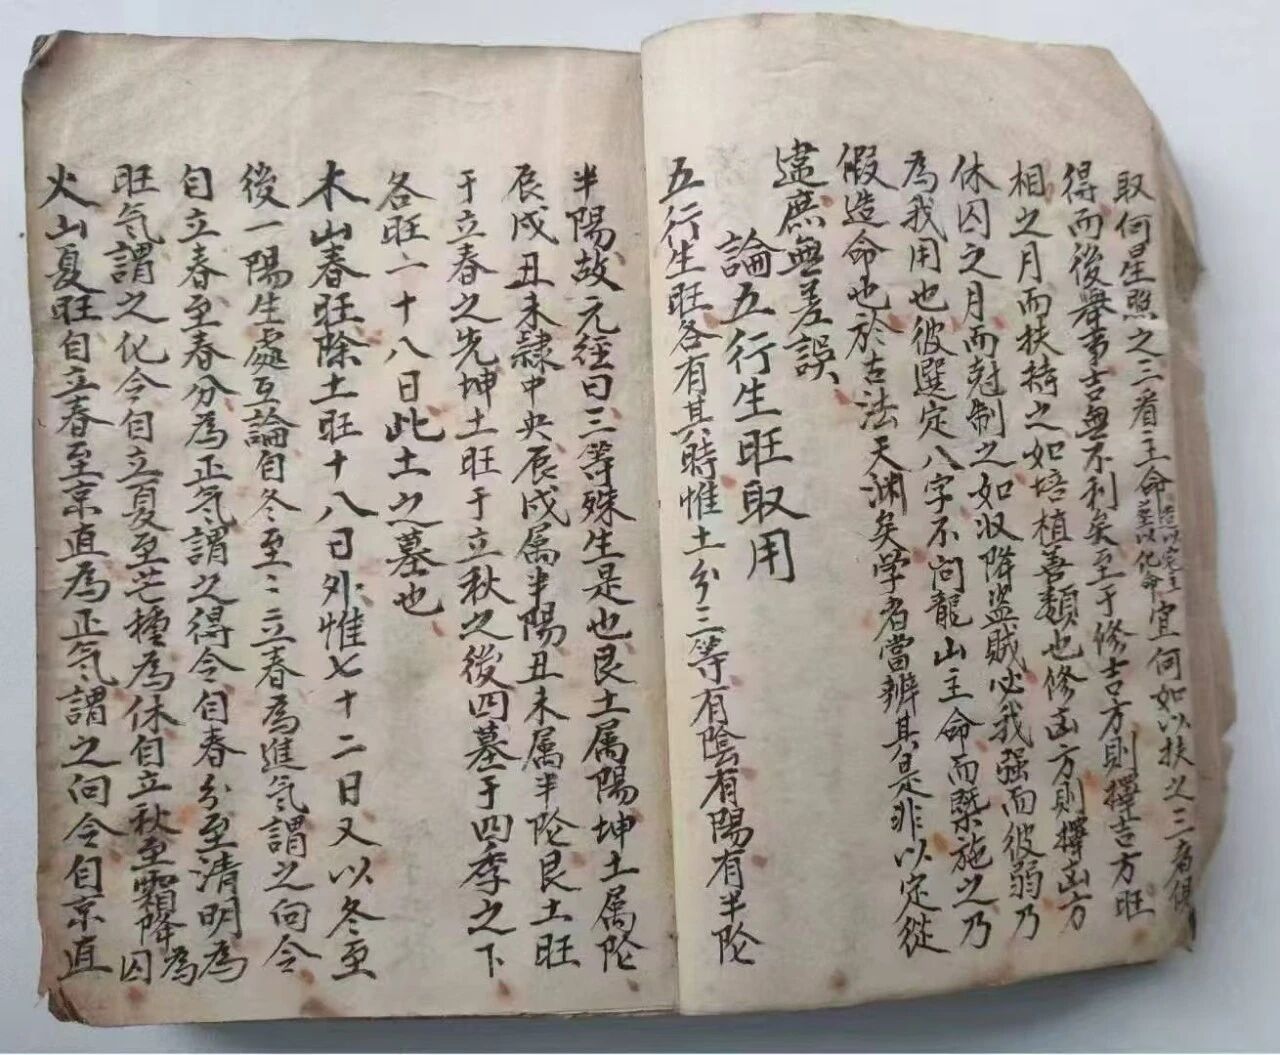 取何星照之三看主命造以宅主葬以化命宜何如以扶之三者俱
得而後舉事吉無不利矣至于修吉方則擇吉方旺
相之月而扶持之如培植善類也修凶方則擇凶方
休囚之月而尅制之如收降盜賊必我强而彼弱乃
為我用也彼選定八字不问龍山主命而槩施之乃
假造命也於古法天渊矣学者當辨其是非以定從
違庶無差誤
論五行生旺取用
五行生旺各有其時惟土分三等有陰有陽有半陰
半陽故元經曰三等殊生是也艮土属陽坤土属陰
辰戍丑未隸中央辰戍属半陽丑未属半陰艮土旺
于立春之先坤土旺于立秋之後四墓于四季之下
各旺一十八日此土之墓也
木山春旺除土旺十八日外惟七十二日又以冬至
後一陽生處互論自冬至〻立春為進气謂之向令
自立春至春分為正气謂之得令自春分至清明為
旺气謂之化令自立夏至芒種為休自立秋至霜降為囚
火山夏旺自立春至京直為正气謂之向令自京直